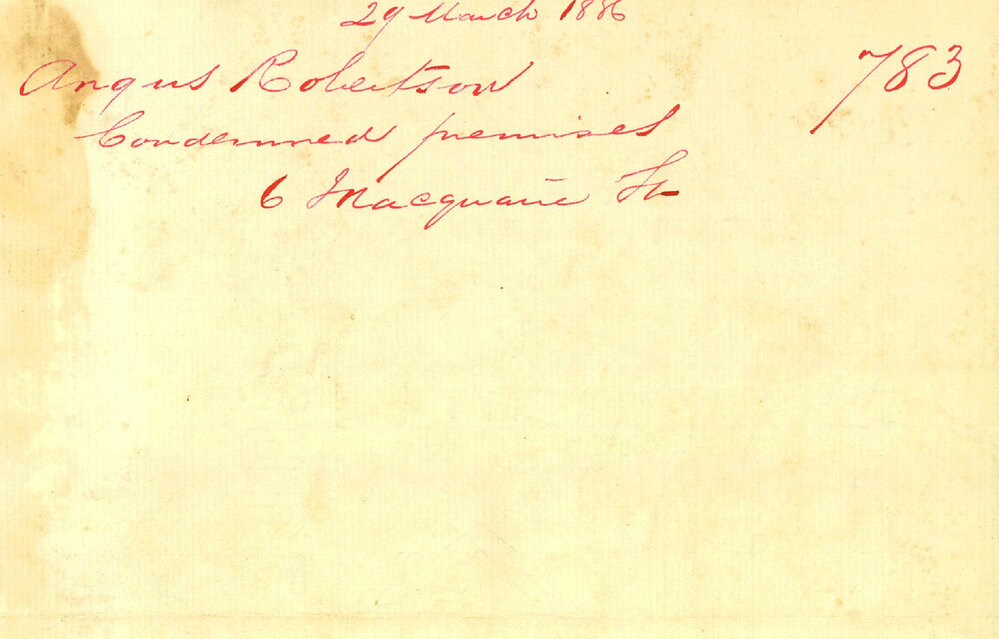 29 March 1886
Angus Robertson 783
Condemned premises
6 Macquarie St